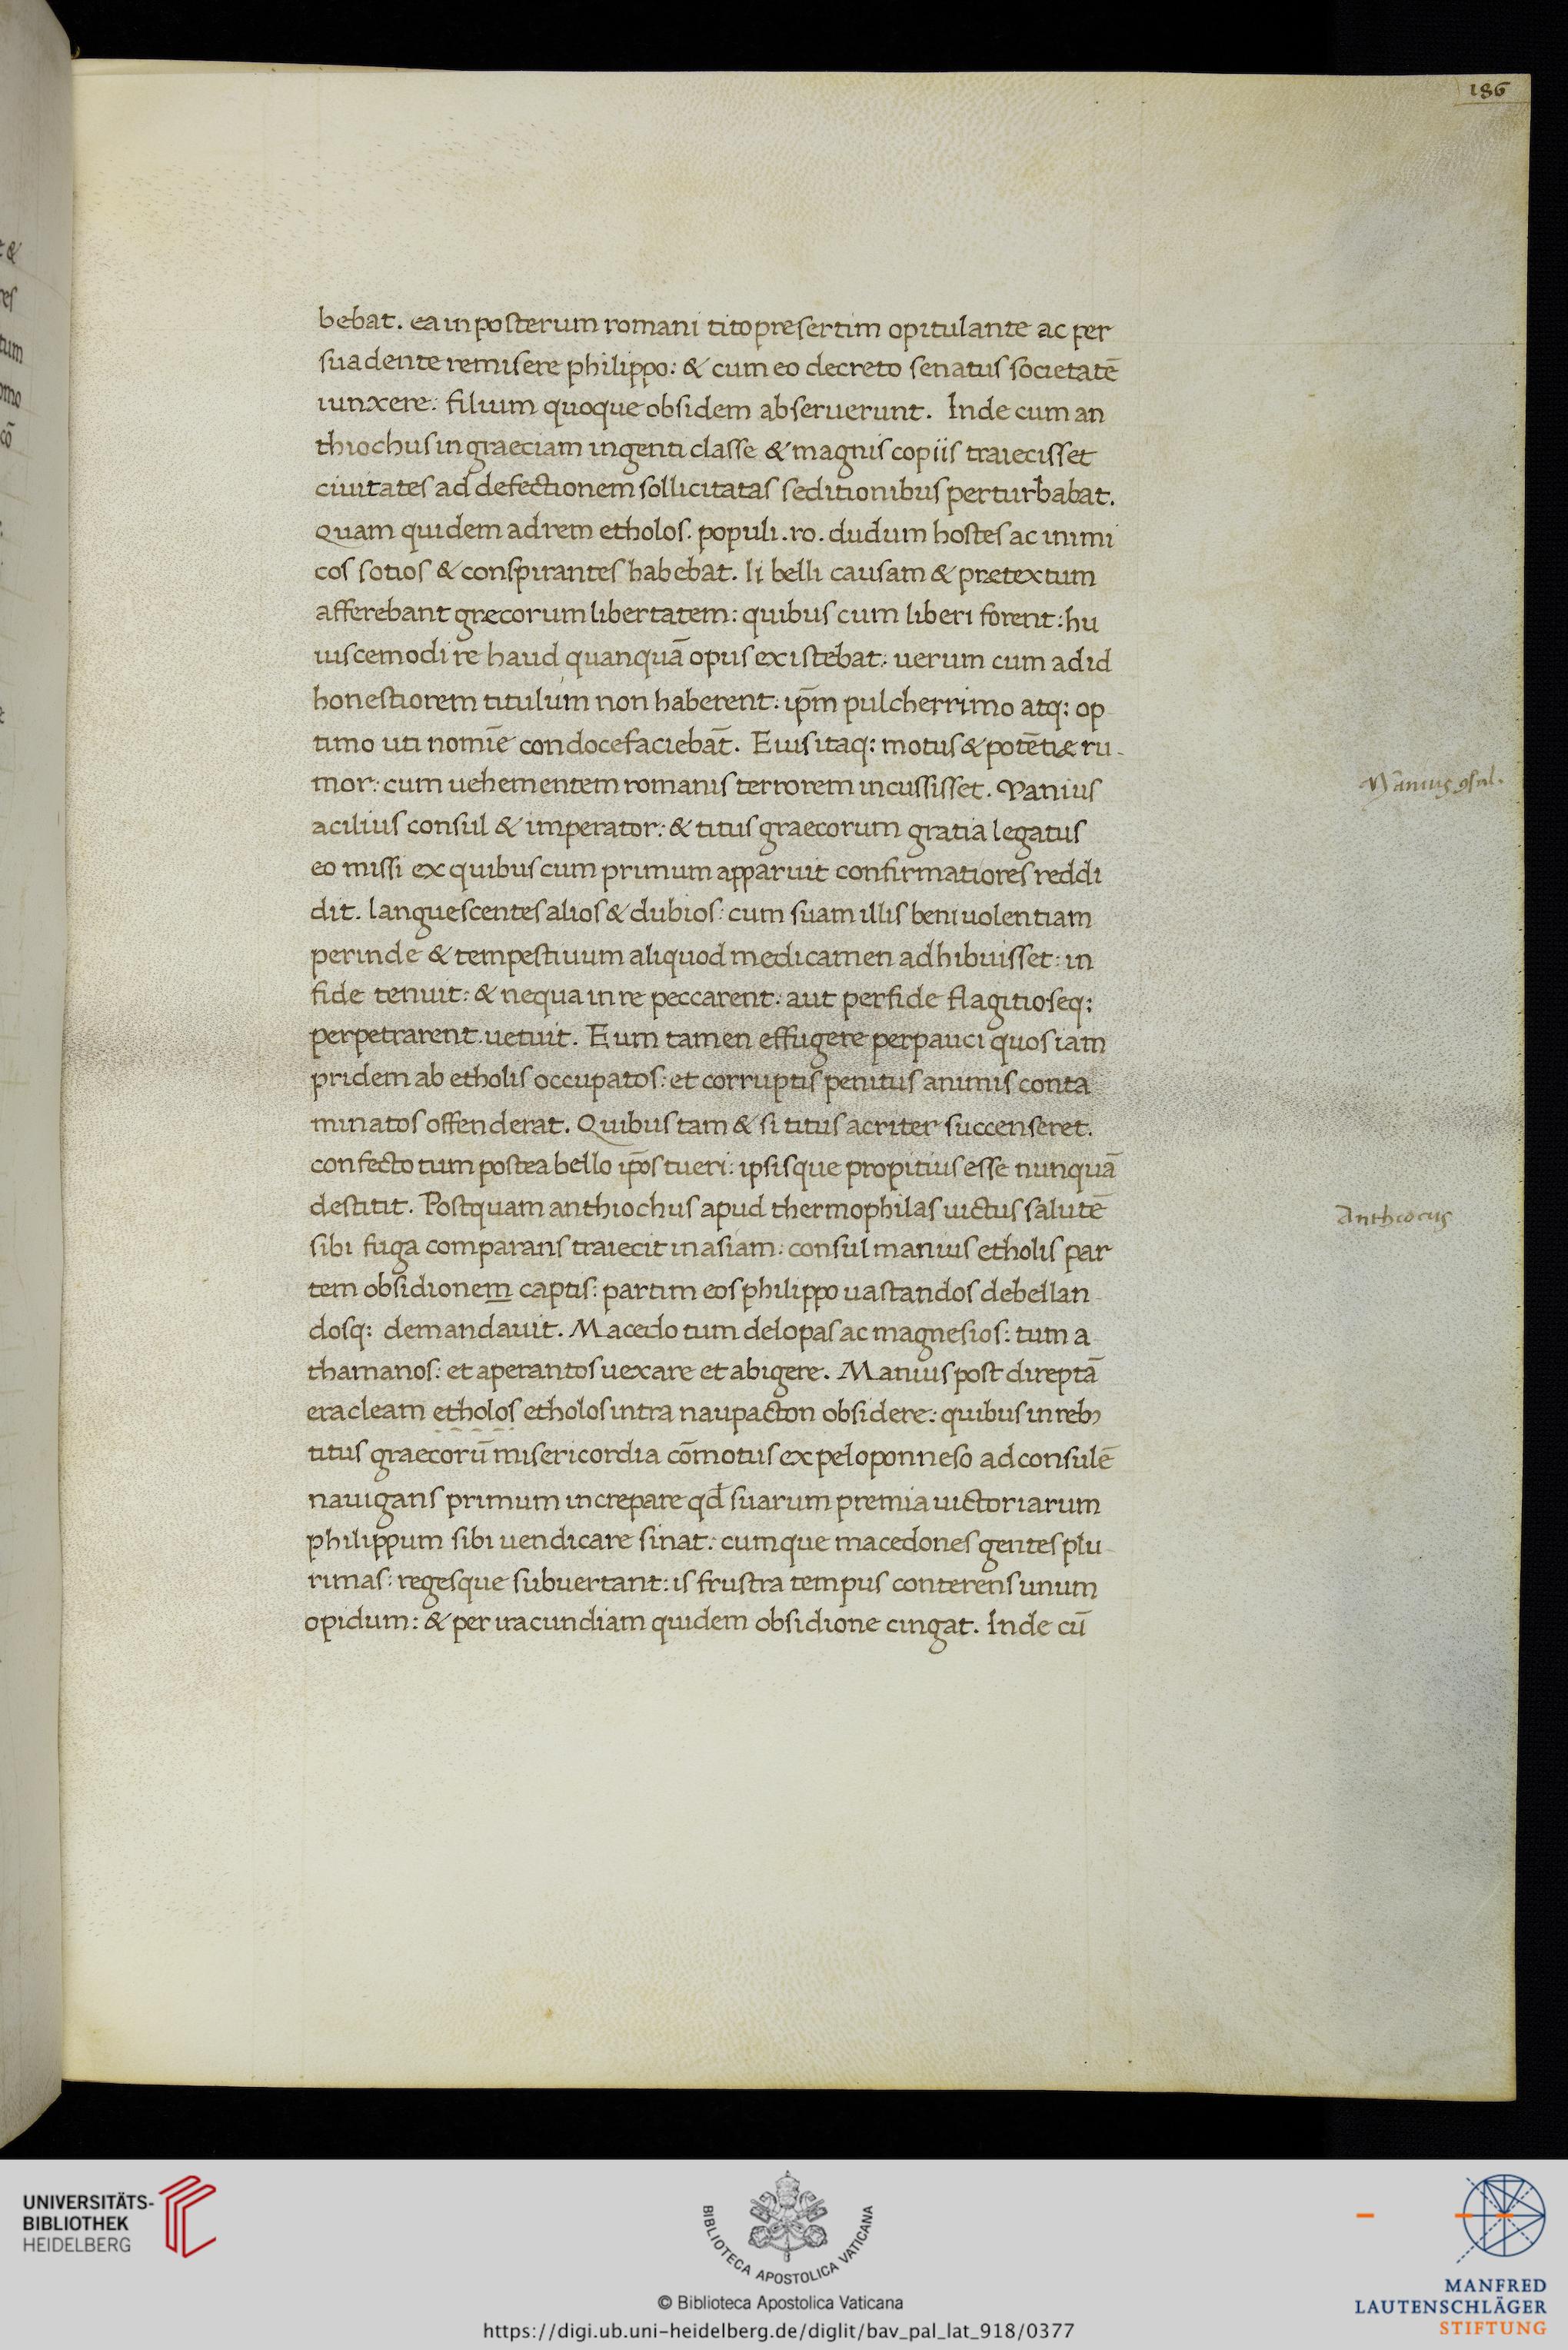 186
bebat. ea in posterum romani tito presertim opitulante ac per
suadente remisere philippo: & cum eo decreto senatus societatē
iunxere: filium quoque obsidem abseruerunt. Inde cum an
thiochus in graeciam ingenti classe & magnis copiis traiecisset
ciuitates ad defectionem sollicitatas seditionibus perturbabat.
Quam quidem ad rem etholos. populi. ro. dudum hostes ac inimi
cos sotios & conspirantes habebat. Ii belli causam & pretextum
afferebant grecorum libertatem: quibus cum liberi forent: hu
iuscemodi re haud quanquā opus existebat: uerum cum ad id
honestiorem titulum non haberent: ip̄m pulcherrimo atq: op
timo uti nomīe condocefaciebāt. Eius itaq: motus & potētiæ ru-
mor: cum uehementem romanis terrorem incussisset. Manius
Manius 9sul.
acilius consul & imperator: & titus graecorum gratia legatus
eo missi ex quibus cum primum apparuit confirmatiores reddi
dit. languescentes alios & dubios: cum suam illis beniuolentiam
perinde & tempestiuum aliquod medicamen adhibuisset: in
fide tenuit: & nequa in re peccarent: aut perfide flagitioseq:
perpetrarent. uetuit. Eum tamen effugere perpauci quos iam
pridem ab etholis occupatos: et corruptis penitus animis conta
minatos offenderat. Quibus tam & si titus acriter succenseret.
confecto tum postea bello ip̄os tueri: ipsisque propitius esse nunquā
destitit. Postquam anthiochus apud thermophilas uictus salutē
Anthiocus
sibi fuga comparans traiecit in asiam: consul manius etholis par
tem obsidionem captis: partim eos philippo uastandos debellan-
dosq: demandauit. Macedo tum delopas ac magnesios: tum a-
thamanos: et aperantos uexare et abigere. Manius post direptā
eracleam etholos etholos intra naupacton obsidere: quibus in reb9
titus graecorū misericordia cōmotus ex peloponneso ad consulē
nauigans primum increpare qd̄ suarum premia uictoriarum
philippum sibi uendicare sinat: cumque macedones gentes plu-
rimas: regesque subuertant: is frustra tempus conterens unum
opidum: & per iracundiam quidem obsidione cingat. Inde cū
UNIVERSITÄTS-
BIBLIOTHEK
HEIDELBERG
BIBLIOTECA APOSTOLICA VATICANA
© Biblioteca Apostolica Vaticana
https://digi.ub.uni-heidelberg.de/diglit/bav_pal_lat_918/0377
MANFRED
LAUTENSCHLÄGER
STIFTUNG